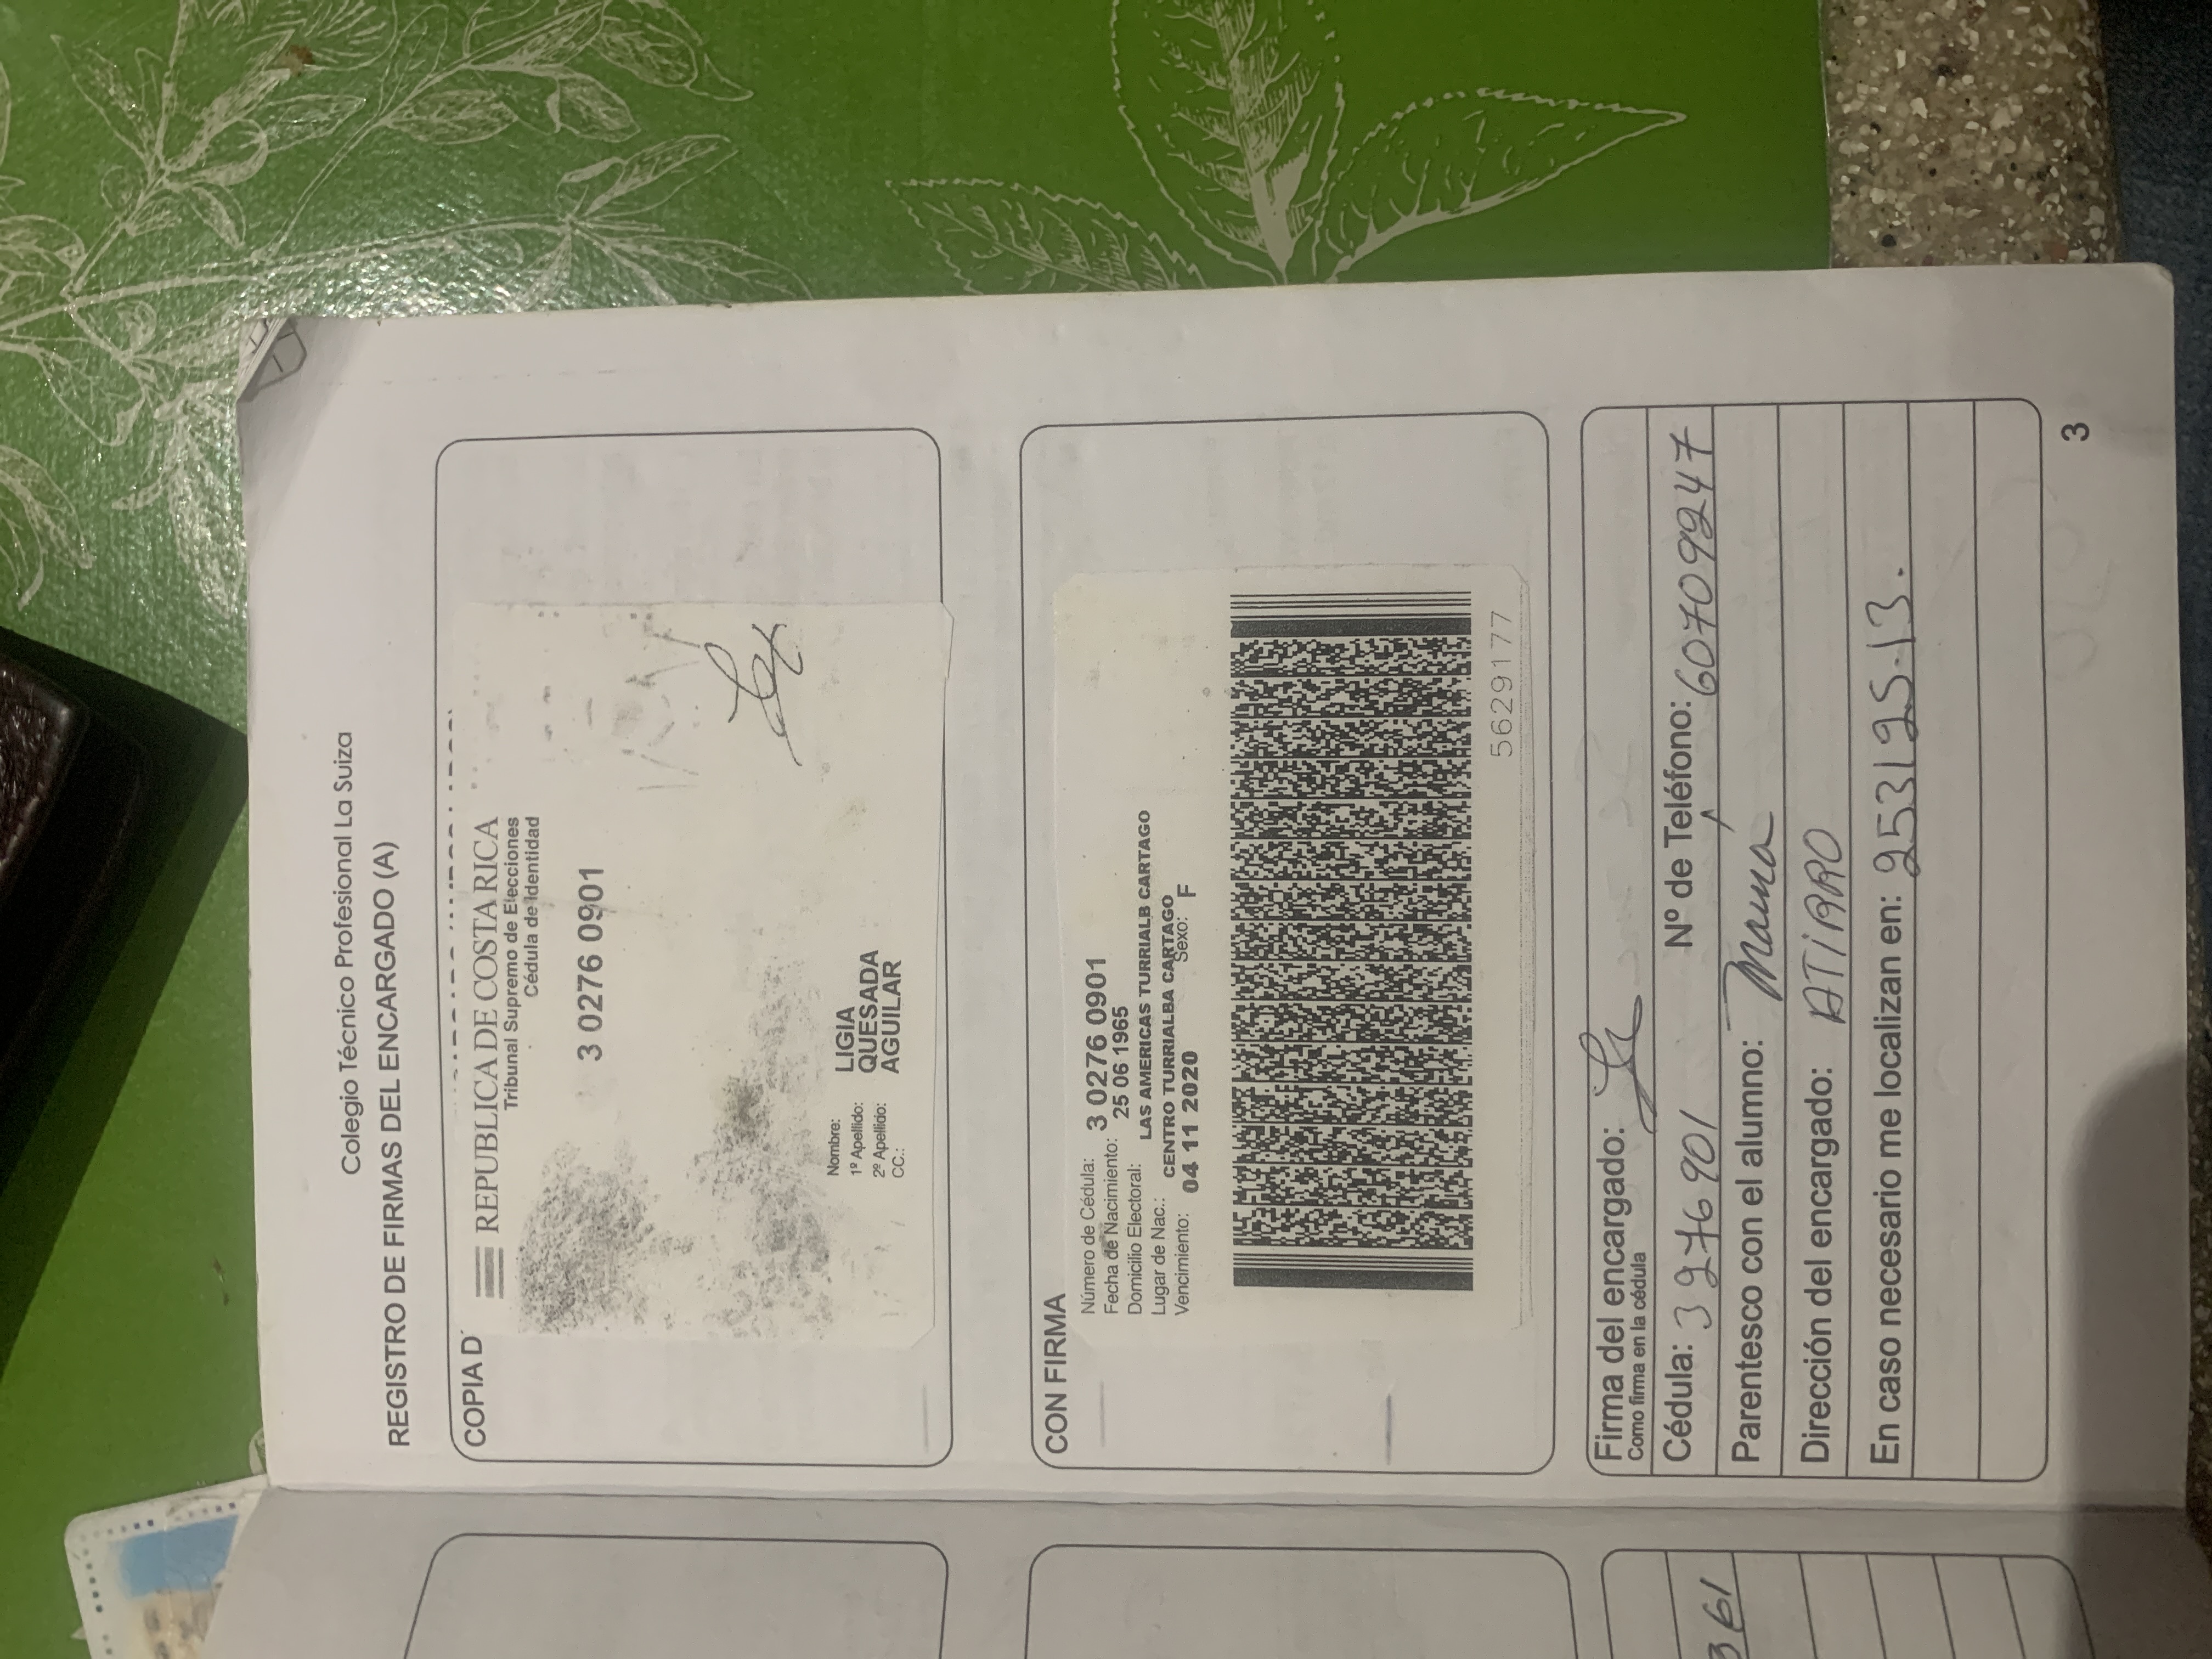 Colegio Técnico Profesional La Suiza
REGISTRO DE FIRMAS DEL ENCARGADO (A)
COPIA D
REPUBLICA DE COSTA RICA
Tribunal Supremo de Elecciones
Cédula de Identidad
3 0276 0901
Nombre: LIGIA
1º Apellido: QUESADA
2º Apellido: AGUILAR
CC.:
CON FIRMA
Número de Cédula: 3 0276 0901
Fecha de Nacimiento: 25 06 1965
Domicilio Electoral: LAS AMERICAS TURRIALB CARTAGO
Lugar de Nac.: CENTRO TURRIALBA CARTAGO
Vencimiento: 04 11 2020 Sexo: F
5629177
Firma del encargado:
Como firma en la cédula
Cédula: 3276901 Nº de Teléfono: 60709247
361
Parentesco con el alumno: Mamá
Dirección del encargado: ATIRRO
En caso necesario me localizan en: 253125-13.
3